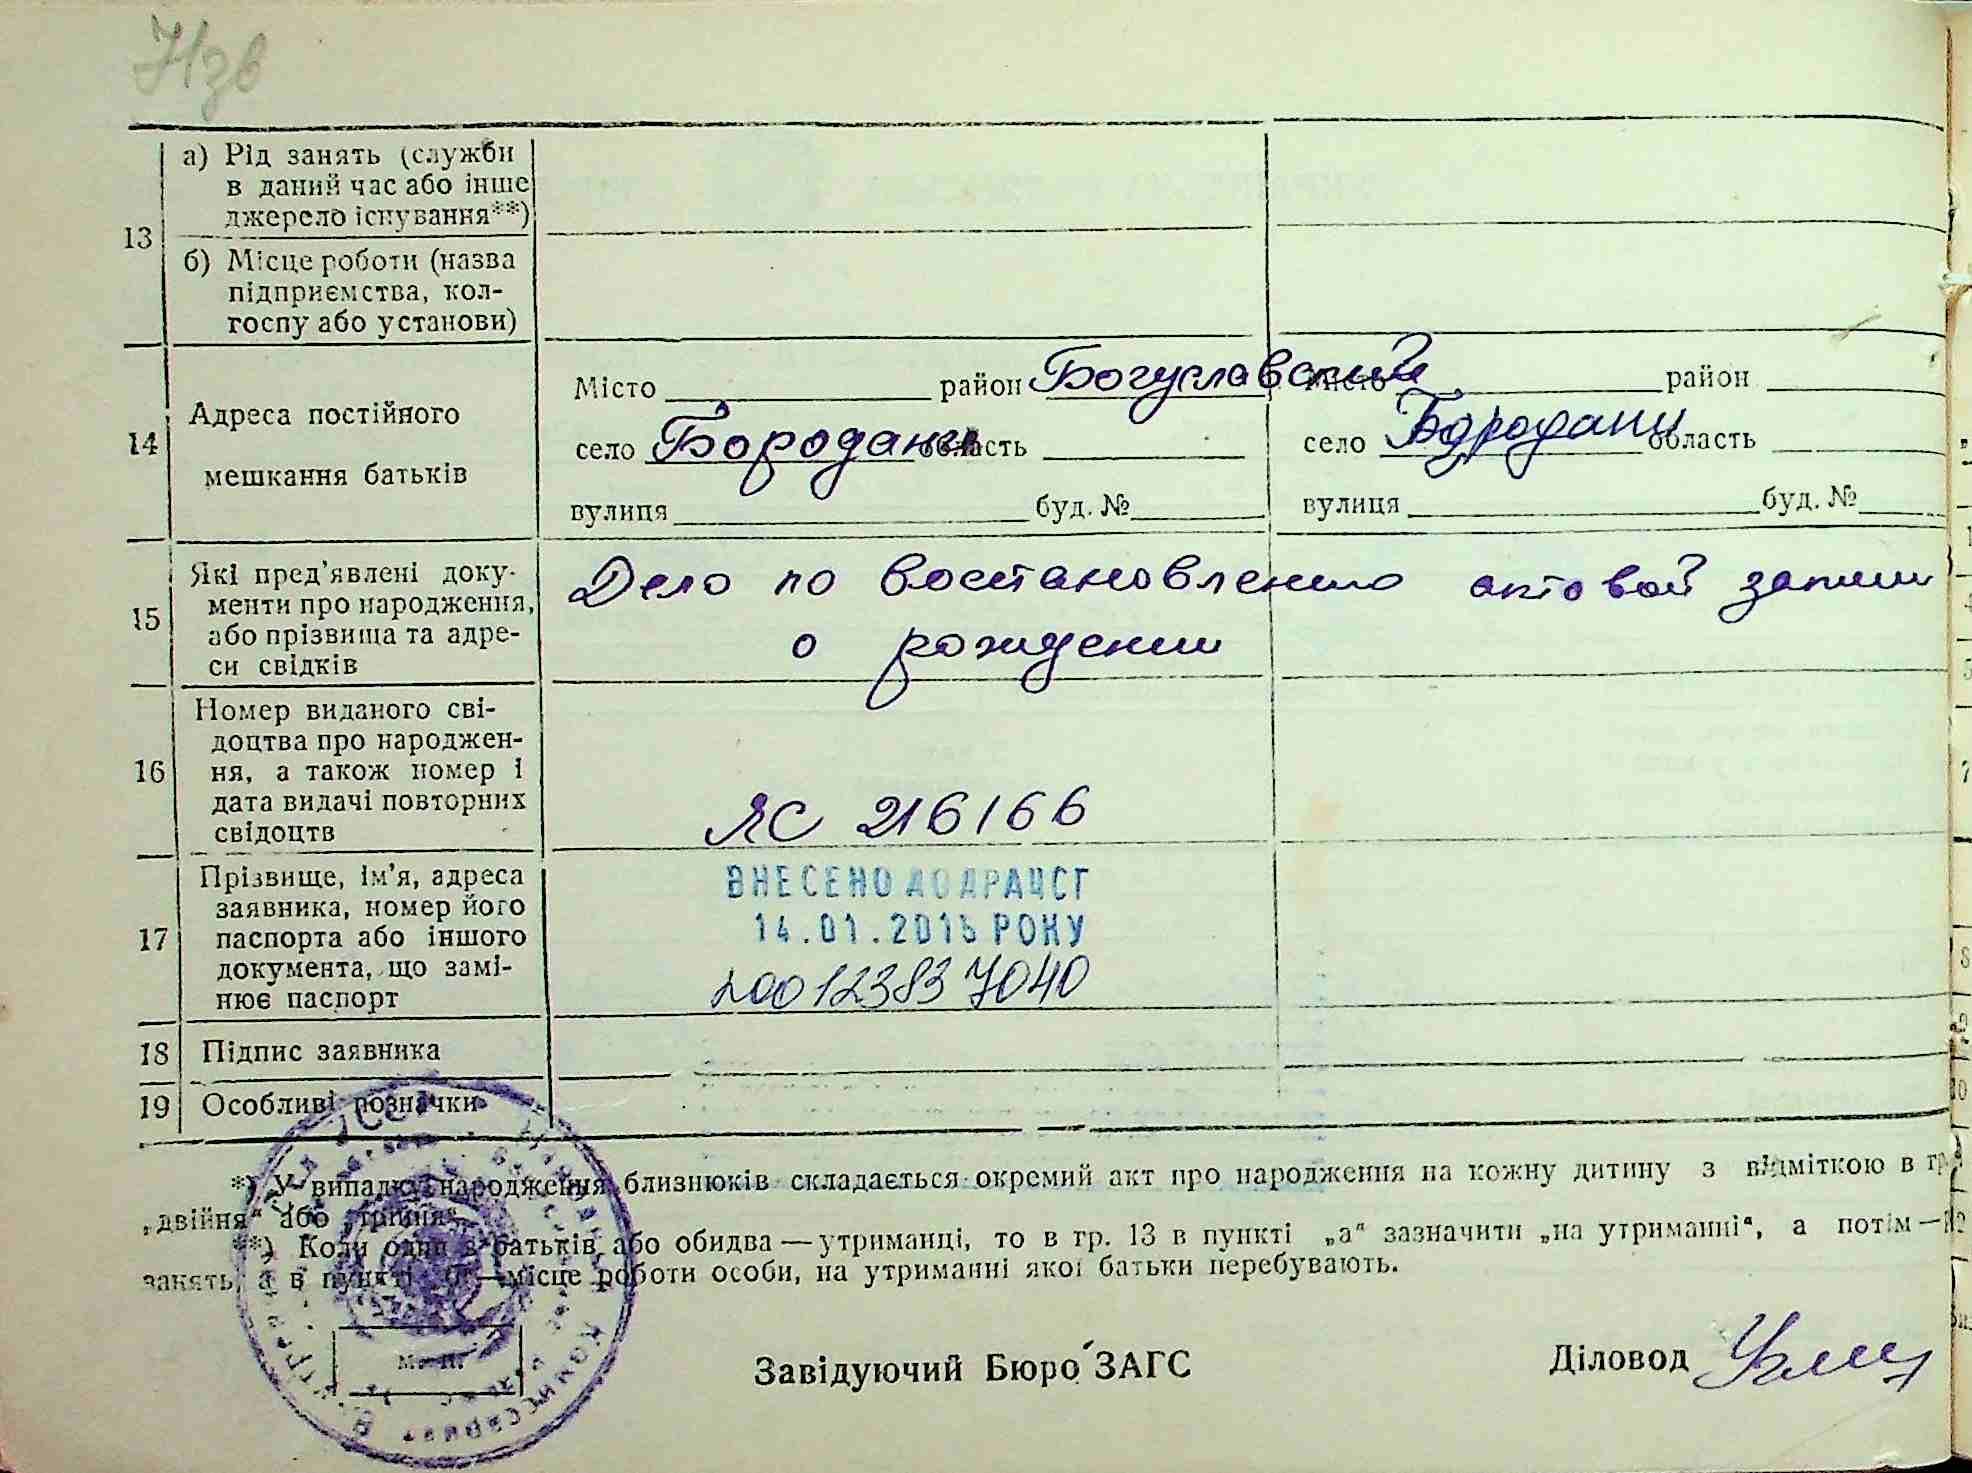 Нзв
13
а) Рід занять (служби
в даний час або інше
джерело існування**)
б) Місце роботи (назва
підприємства, кол-
госпу або установи)
14
Адреса постійного
мешкання батьків
Місто район Богуславский
село Бородани область
вулиця буд. №
Місто район
село Бородани область
вулиця буд. №
15
Які пред’явлені доку-
менти про народження,
або прізвища та адре-
си свідків
Дело по восстановлению актовой записи
о рождении
16
Номер виданого сві-
доцтва про народжен-
ня, а також номер і
дата видачі повторних
свідоцтв
ЯС 216166
17
Прізвище, ім’я, адреса
заявника, номер його
паспорта або іншого
документа, що замі-
нює паспорт
ВНЕСЕНО ДО ДРАЦСГ
14.01.2015 РОКУ
20012383 7040
18 Підпис заявника
19 Особливі розначки
*) У випадку народження близнюків складається окремий акт про народження на кожну дитину з відміткою в гр.
„двійня“ або „трійня“.
**) Коли один з батьків або обидва — утриманці, то в гр. 13 в пункті „а“ зазначити „на утриманні“, а потім —
занять, а в пункті „б“ — місце роботи особи, на утриманні якої батьки перебувають.
М. П.
Завідуючий Бюро ЗАГС
Діловод